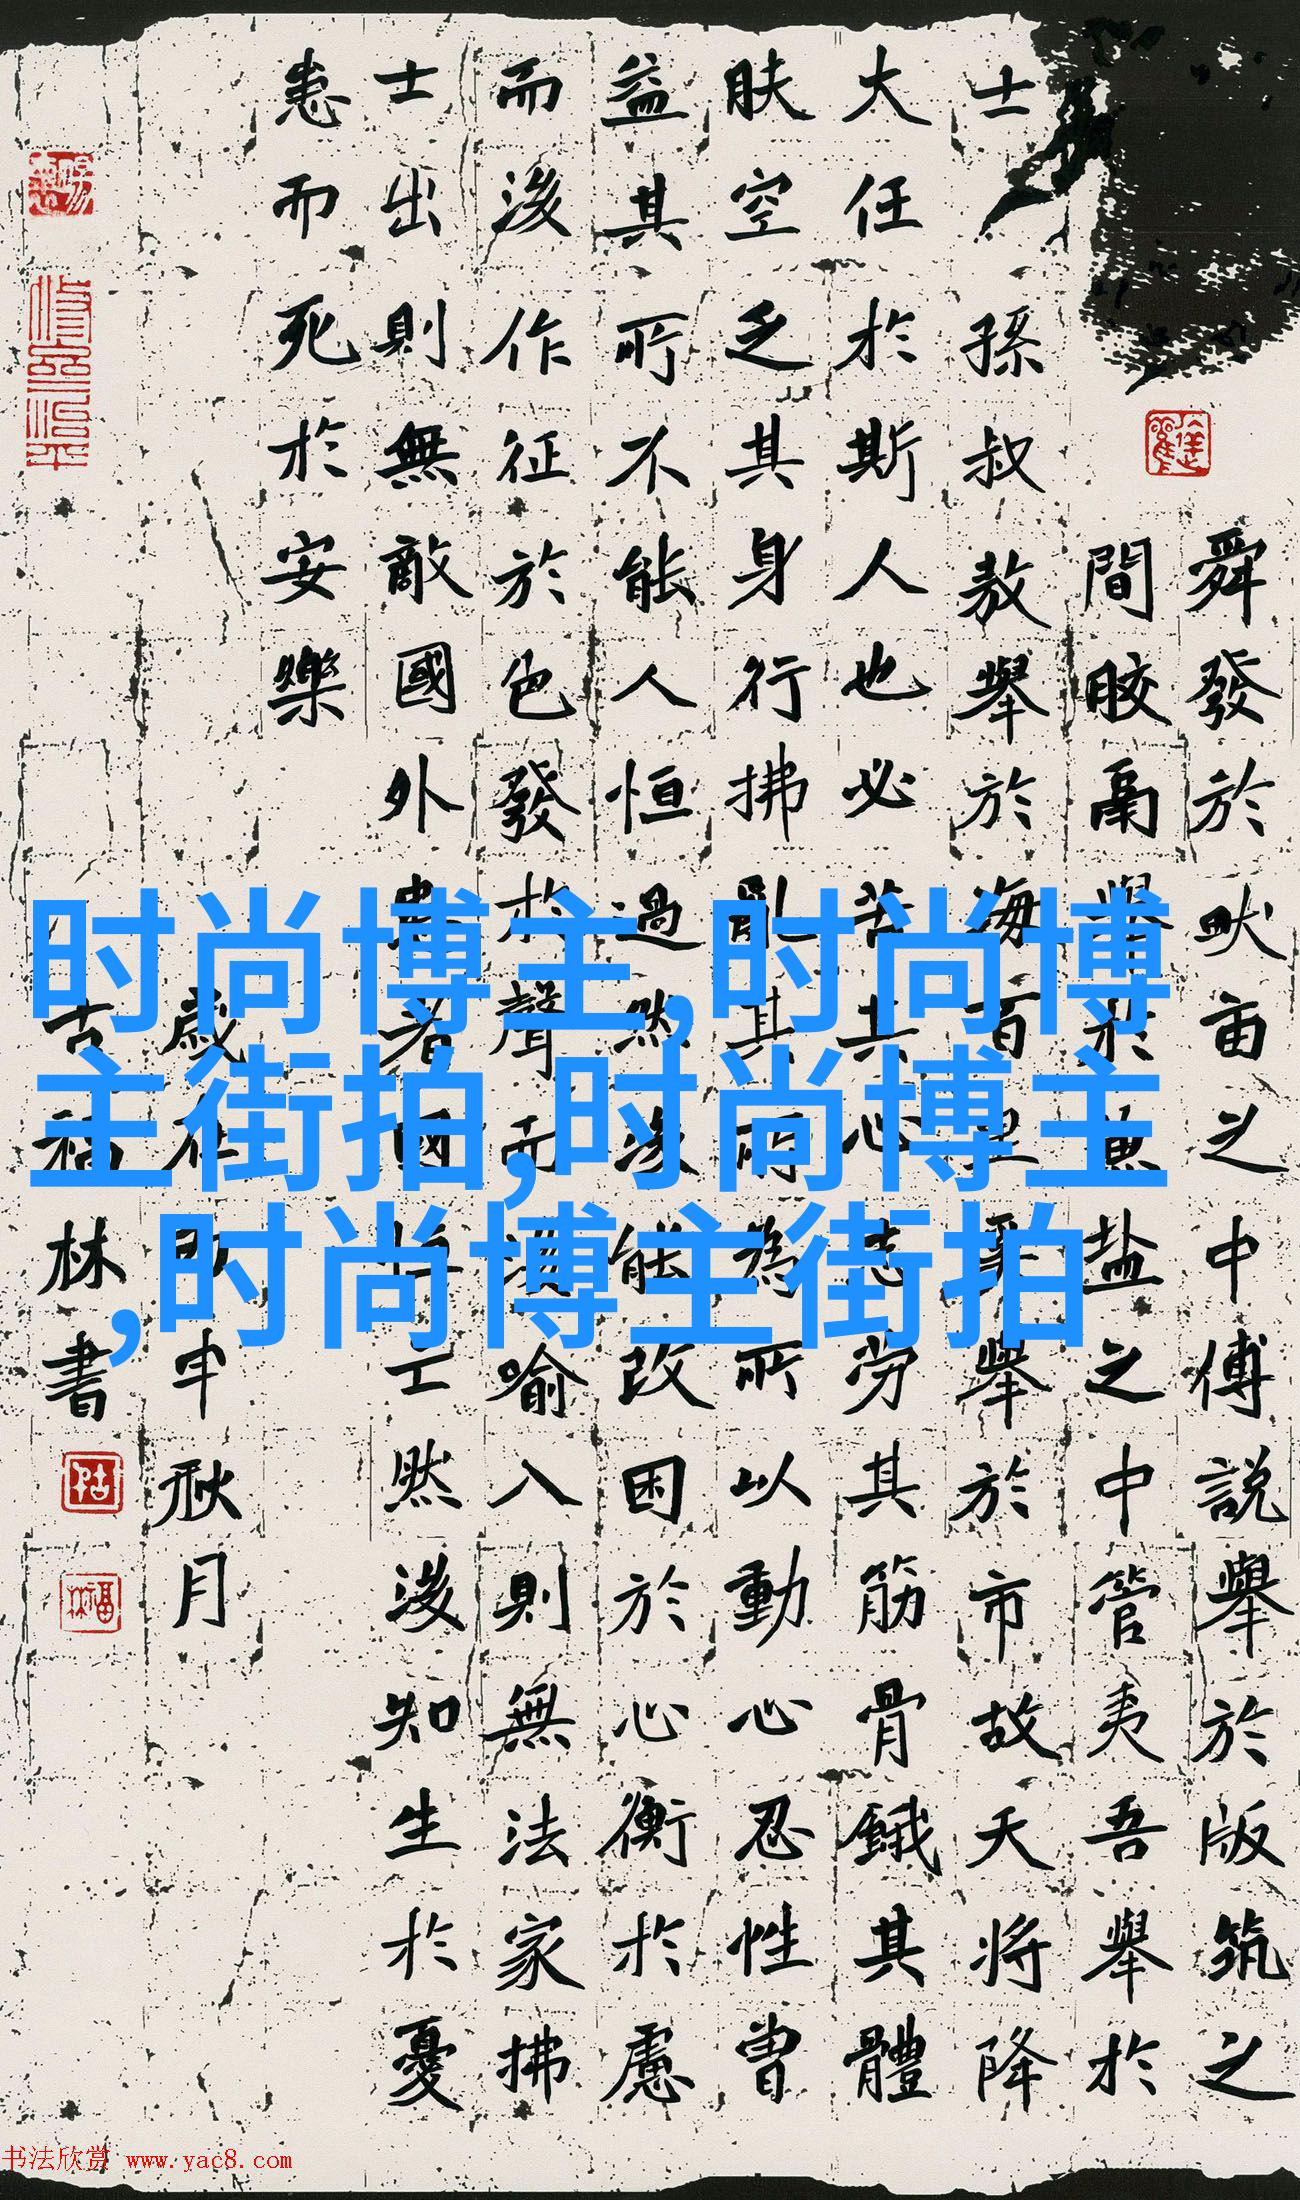 舜發於畎亩之中傅説舉於版筑之
間膠鬲舉於魚盐之中管夷吾舉於
士孫叔敖舉於海百里奚舉於市故天將降
大任於斯人也必苦其心志劳其筋骨餓其體
肤空乏其身行拂亂其所為所以動心忍性曾
益其所不能人恒過然後能改困於心衡於慮
而後作征於色發於聲而後喻入則無法家拂
士出則無敵國外患者國恒亡然後知生於憂
患而死於安樂
歲在申秋月
古福林書
时尚博主,时尚博
主街拍,时尚博主
,时尚博主街拍
书法欣赏 www.yac8.com